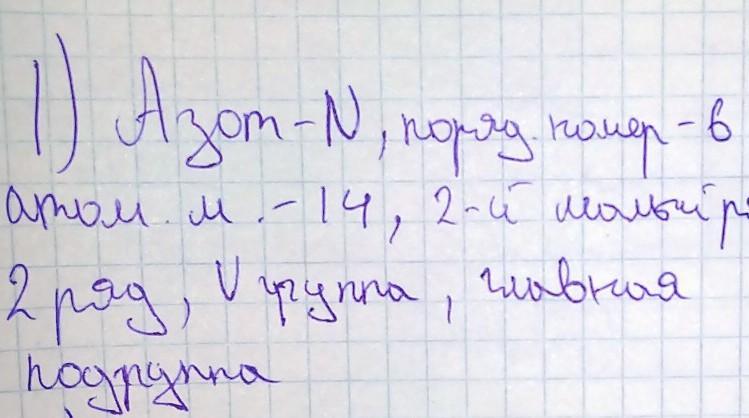 1) Азот - N, поряд. номер - 6
атом. м. - 14, 2-й малый
2 ряд, V группа, главная
подгруппа